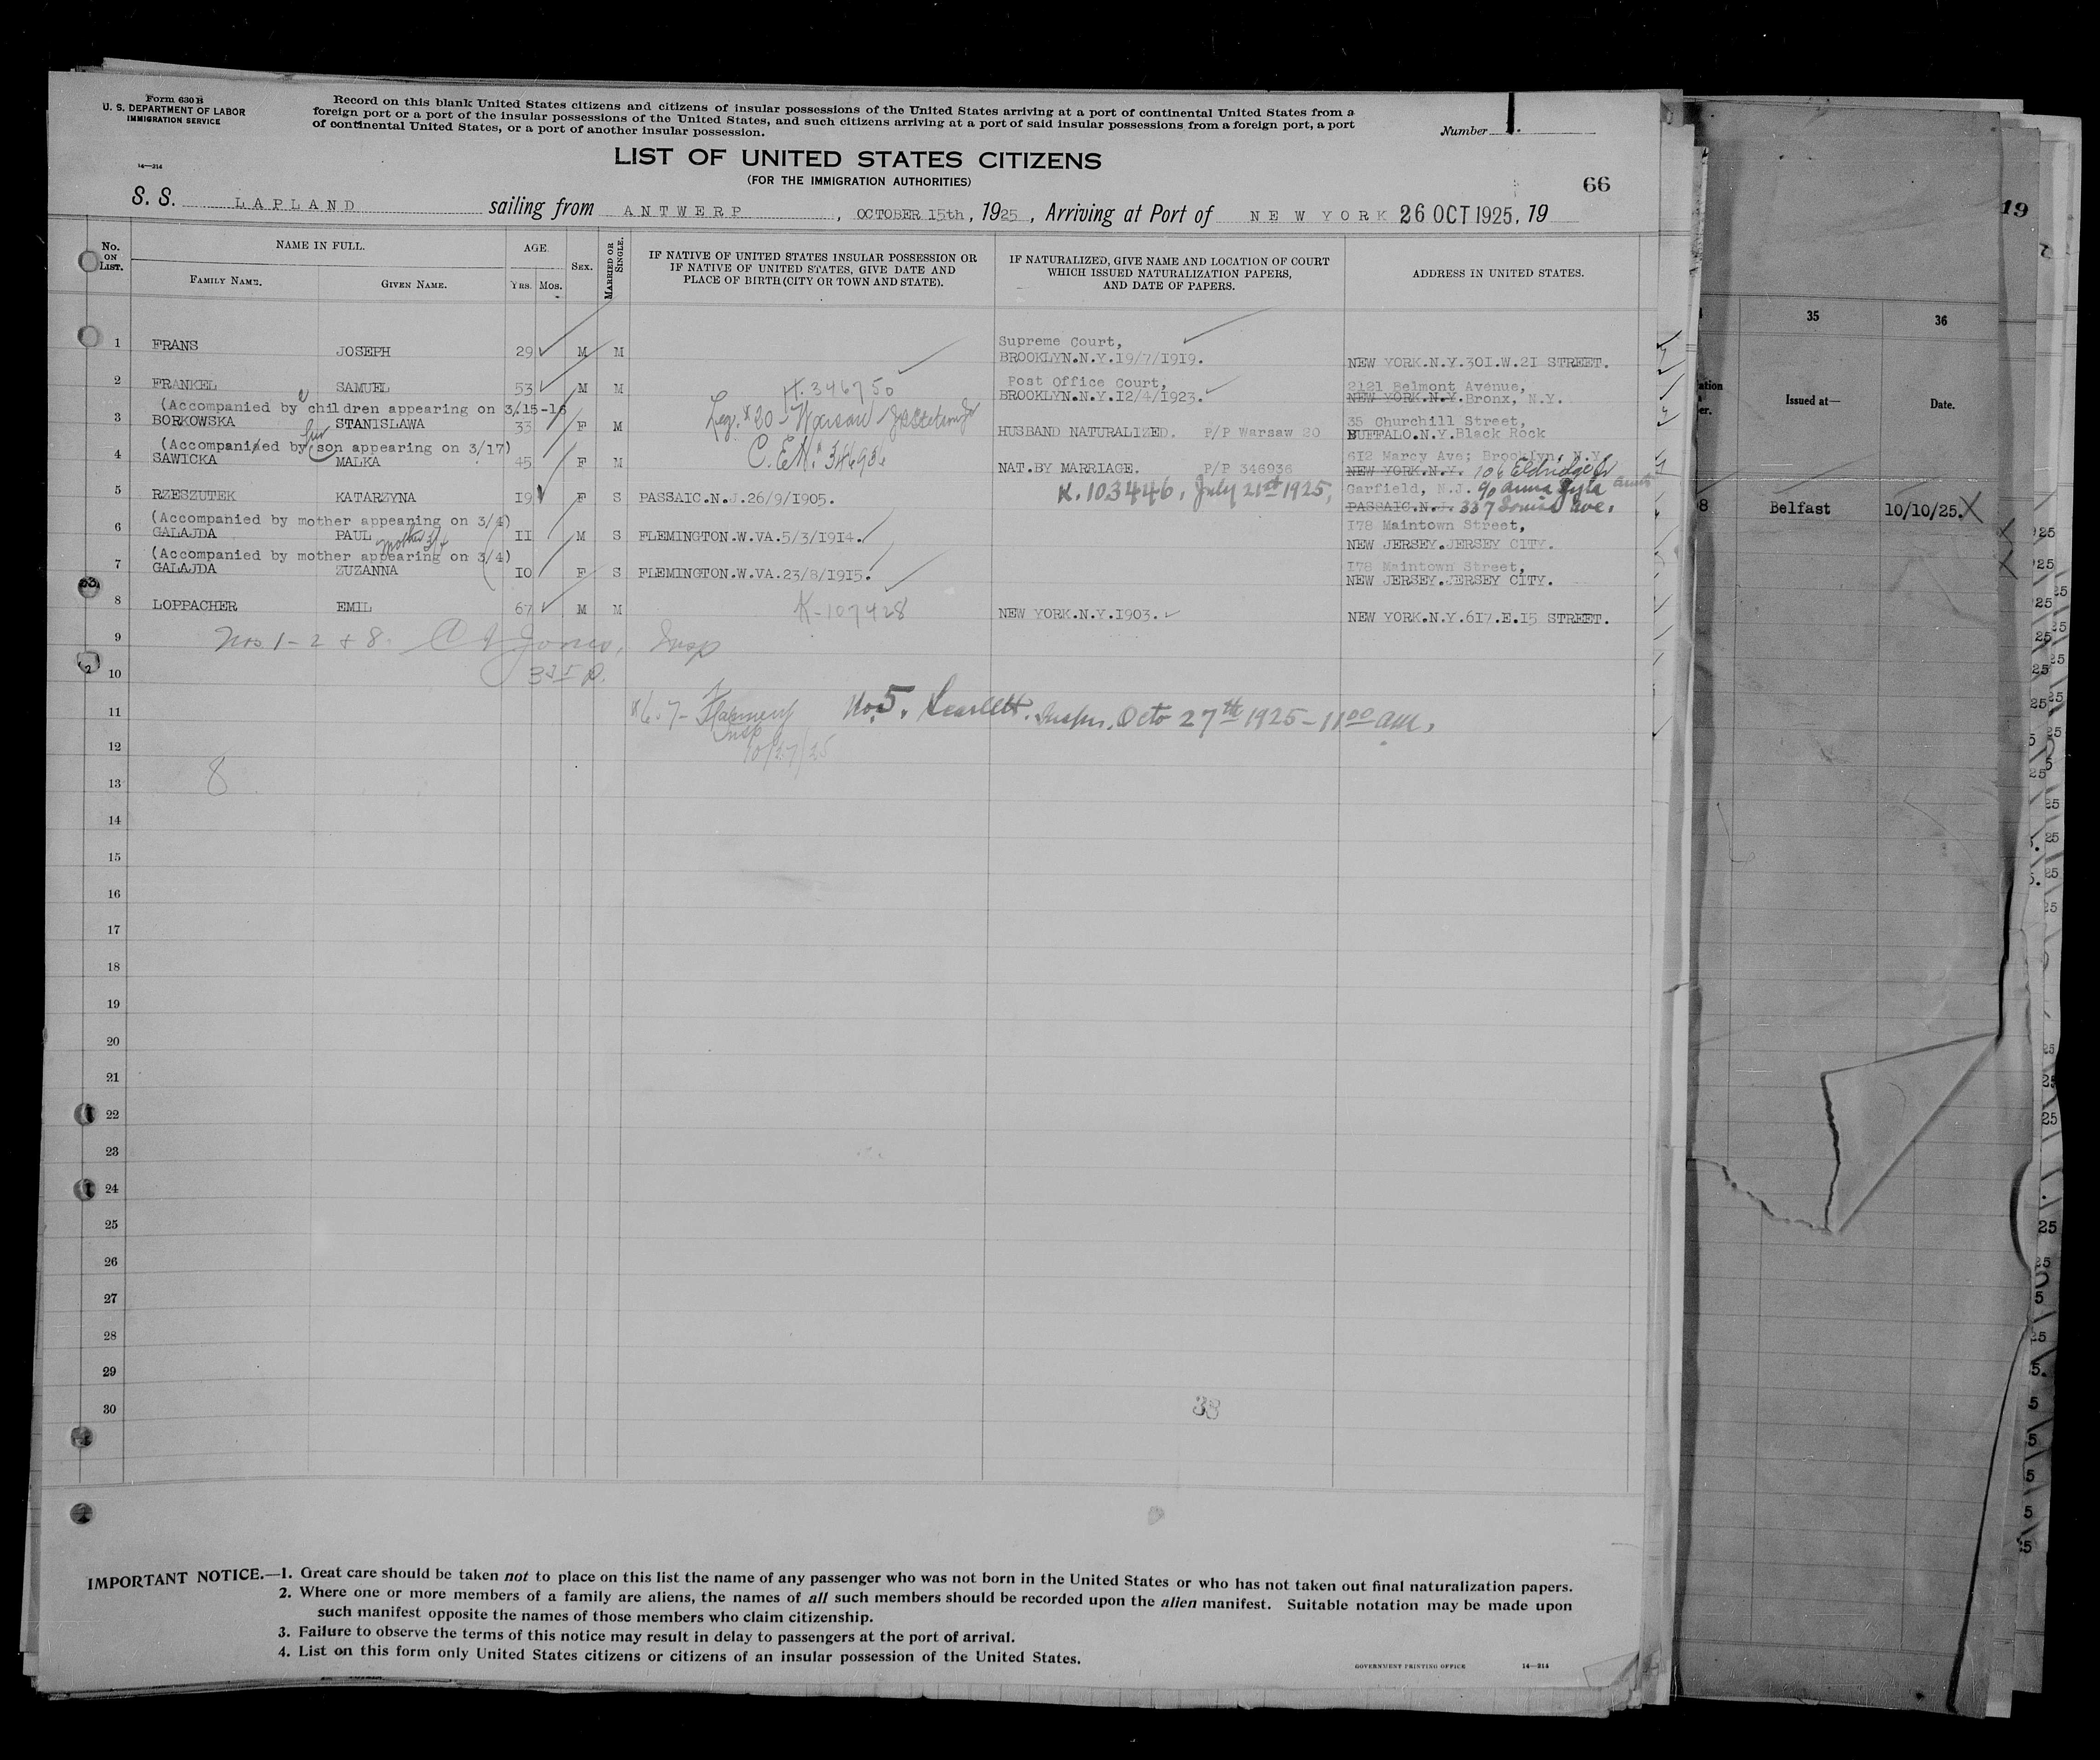 Form 630 B
U. S. DEPARTMENT OF LABOR
IMMIGRATION SERVICE
14—214
Record on this blank United States citizens and citizens of insular possessions of the United States arriving at a port of continental United States from a
foreign port or a port of the insular possessions of the United States, and such citizens arriving at a port of said insular possessions from a foreign port, a port
of continental United States, or a port of another insular possession.
Number 1.
LIST OF UNITED STATES CITIZENS
(FOR THE IMMIGRATION AUTHORITIES)
66
S. S. LAPLAND sailing from ANTWERP, OCTOBER 15th, 1925, Arriving at Port of NEW YORK 26 OCT 1925, 19
No. ON LIST. NAME IN FULL. FAMILY NAME. GIVEN NAME. AGE. YRS. MOS. SEX. MARRIED OR SINGLE.
IF NATIVE OF UNITED STATES INSULAR POSSESSION OR
IF NATIVE OF UNITED STATES, GIVE DATE AND
PLACE OF BIRTH (CITY OR TOWN AND STATE).
IF NATURALIZED, GIVE NAME AND LOCATION OF COURT
WHICH ISSUED NATURALIZATION PAPERS,
AND DATE OF PAPERS.
ADDRESS IN UNITED STATES.
1 FRANS JOSEPH 29 M M Supreme Court,
BROOKLYN.N.Y.19/7/1919. NEW YORK.N.Y.301.W.21 STREET.
2 FRANKEL SAMUEL 53 M M H.346750 Post Office Court,
BROOKLYN.N.Y.12/4/1923. 2121 Belmont Avenue,
NEW YORK.N.Y.Bronx, N.Y.
(Accompanied by children appearing on 3/15-16
3 BORKOWSKA STANISLAWA 33 F M #20 Warsaw HUSBAND NATURALIZED. P/P Warsaw 20 35 Churchill Street,
BUFFALO.N.Y.Black Rock
(Accompanied by son appearing on 3/17)
4 SAWICKA MALKA 45 F M NAT.BY MARRIAGE. P/P 346936 612 Marcy Ave; Brooklyn, N.Y.
NEW YORK.N.Y. 106 Eldridge St
5 RZESZUTEK KATARZYNA 19 F S PASSAIC.N.J.26/9/1905. K.103446, July 21st 1925, Garfield, N.J. % Anna Zyla aunt
PASSAIC.N.J. 337 Louisa Ave.
(Accompanied by mother appearing on 3/4)
6 GALAJDA PAUL 11 M S FLEMINGTON.W.VA.5/3/1914. 178 Maintown Street,
NEW JERSEY.JERSEY CITY.
mother 3/4
(Accompanied by mother appearing on 3/4)
7 GALAJDA ZUZANNA 10 F S FLEMINGTON.W.VA.23/8/1915. 178 Maintown Street,
NEW JERSEY.JERSEY CITY.
8 LOPPACHER EMIL 67 M M K-107428 NEW YORK.N.Y.1903. NEW YORK.N.Y.617.E.15 STREET.
9
Nos 1-2 + 8. Jones, Insp
10
11
#6.7- Insp 10/27/25
No 5. Scarlett. Inspr. Octo 27th 1925 - 11 00 am.
12
13
8
14
15
16
17
18
19
20
21
22
23
24
25
26
27
28
29
30
38
IMPORTANT NOTICE.—1. Great care should be taken not to place on this list the name of any passenger who was not born in the United States or who has not taken out final naturalization papers.
2. Where one or more members of a family are aliens, the names of all such members should be recorded upon the alien manifest. Suitable notation may be made upon
such manifest opposite the names of those members who claim citizenship.
3. Failure to observe the terms of this notice may result in delay to passengers at the port of arrival.
4. List on this form only United States citizens or citizens of an insular possession of the United States.
GOVERNMENT PRINTING OFFICE 14—214
19
35 36
Issued at— Date.
8 Belfast 10/10/25. X